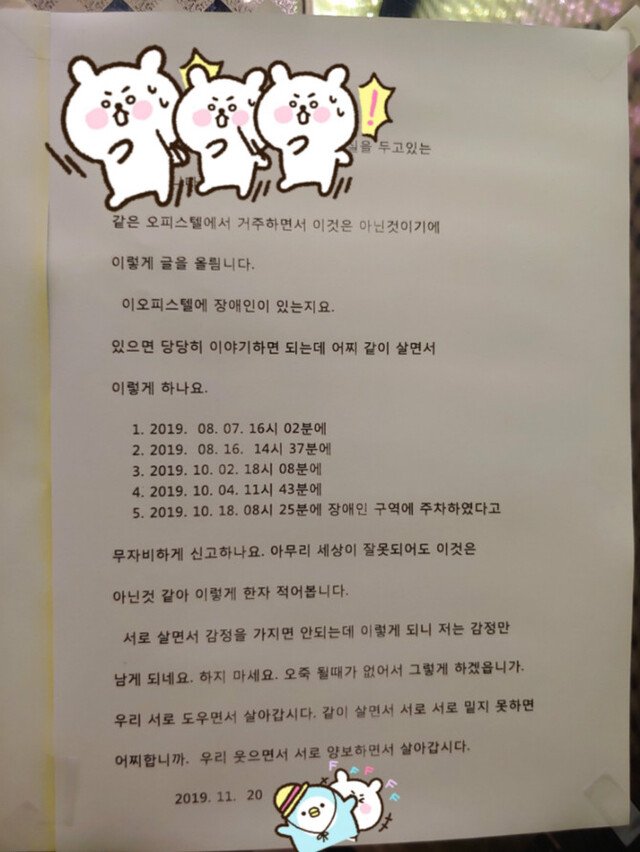 두고있는
같은 오피스텔에서 거주하면서 이것은 아닌것이기에
이렇게 글을 올립니다.
이오피스텔에 장애인이 있는지요.
있으면 당당히 이야기하면 되는데 어찌 같이 살면서
이렇게 하나요.
1. 2019. 08. 07. 16시 02분에
2. 2019. 08. 16. 14시 37분에
3. 2019. 10. 02. 18시 08분에
4. 2019. 10. 04. 11시 43분에
5. 2019. 10. 18. 08시 25분에 장애인 구역에 주차하였다고
무자비하게 신고하나요. 아무리 세상이 잘못되어도 이것은
아닌것 같아 이렇게 한자 적어봅니다.
서로 살면서 감정을 가지면 안되는데 이렇게 되니 저는 감정만
남게 되네요. 하지 마세요. 오죽 될때가 없어서 그렇게 하겠읍니가.
우리 서로 도우면서 살아갑시다. 같이 살면서 서로 서로 믿지 못하면
어찌합니까. 우리 웃으면서 서로 양보하면서 살아갑시다.
2019. 11. 20
F F F F F